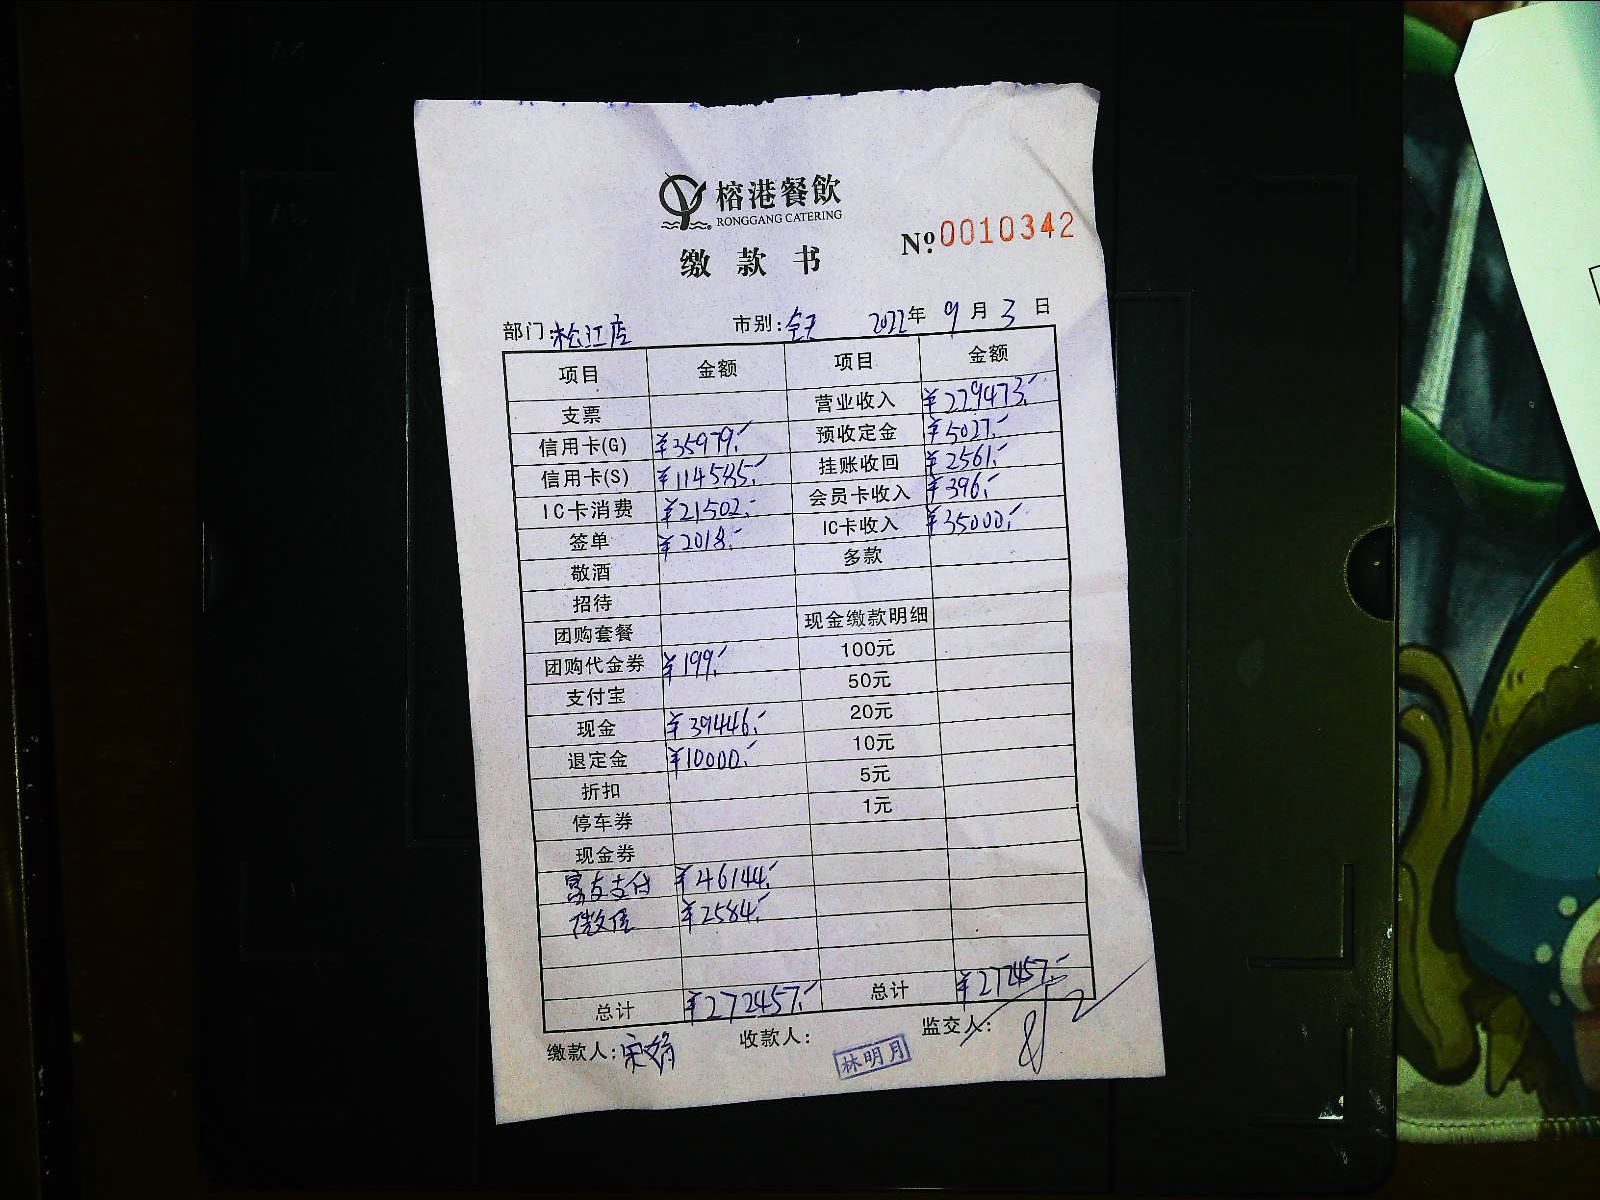 榕港餐飲
RONGGANG CATERING
缴款书
№ 0010342
部门: 松江店 市别: 全天 2022年 9月 3日
项目 金额 项目 金额
支票 营业收入 ¥229473.-
信用卡(G) ¥35979.- 预收定金 ¥5027.-
信用卡(S) ¥114585.- 挂账收回 ¥2561.-
IC卡消费 ¥21502.- 会员卡收入 ¥396.-
签单 ¥2018.- IC卡收入 ¥35000.-
敬酒 多款
招待
团购套餐 现金缴款明细
团购代金券 ¥199.- 100元
支付宝 50元
现金 ¥39446.- 20元
退定金 ¥10000.- 10元
折扣 5元
停车券 1元
现金券
富友支付 ¥46144.-
微信 ¥2584.-
总计 ¥272457.- 总计 ¥272457.-
缴款人: 宋娟 收款人: 林明月 监交人: